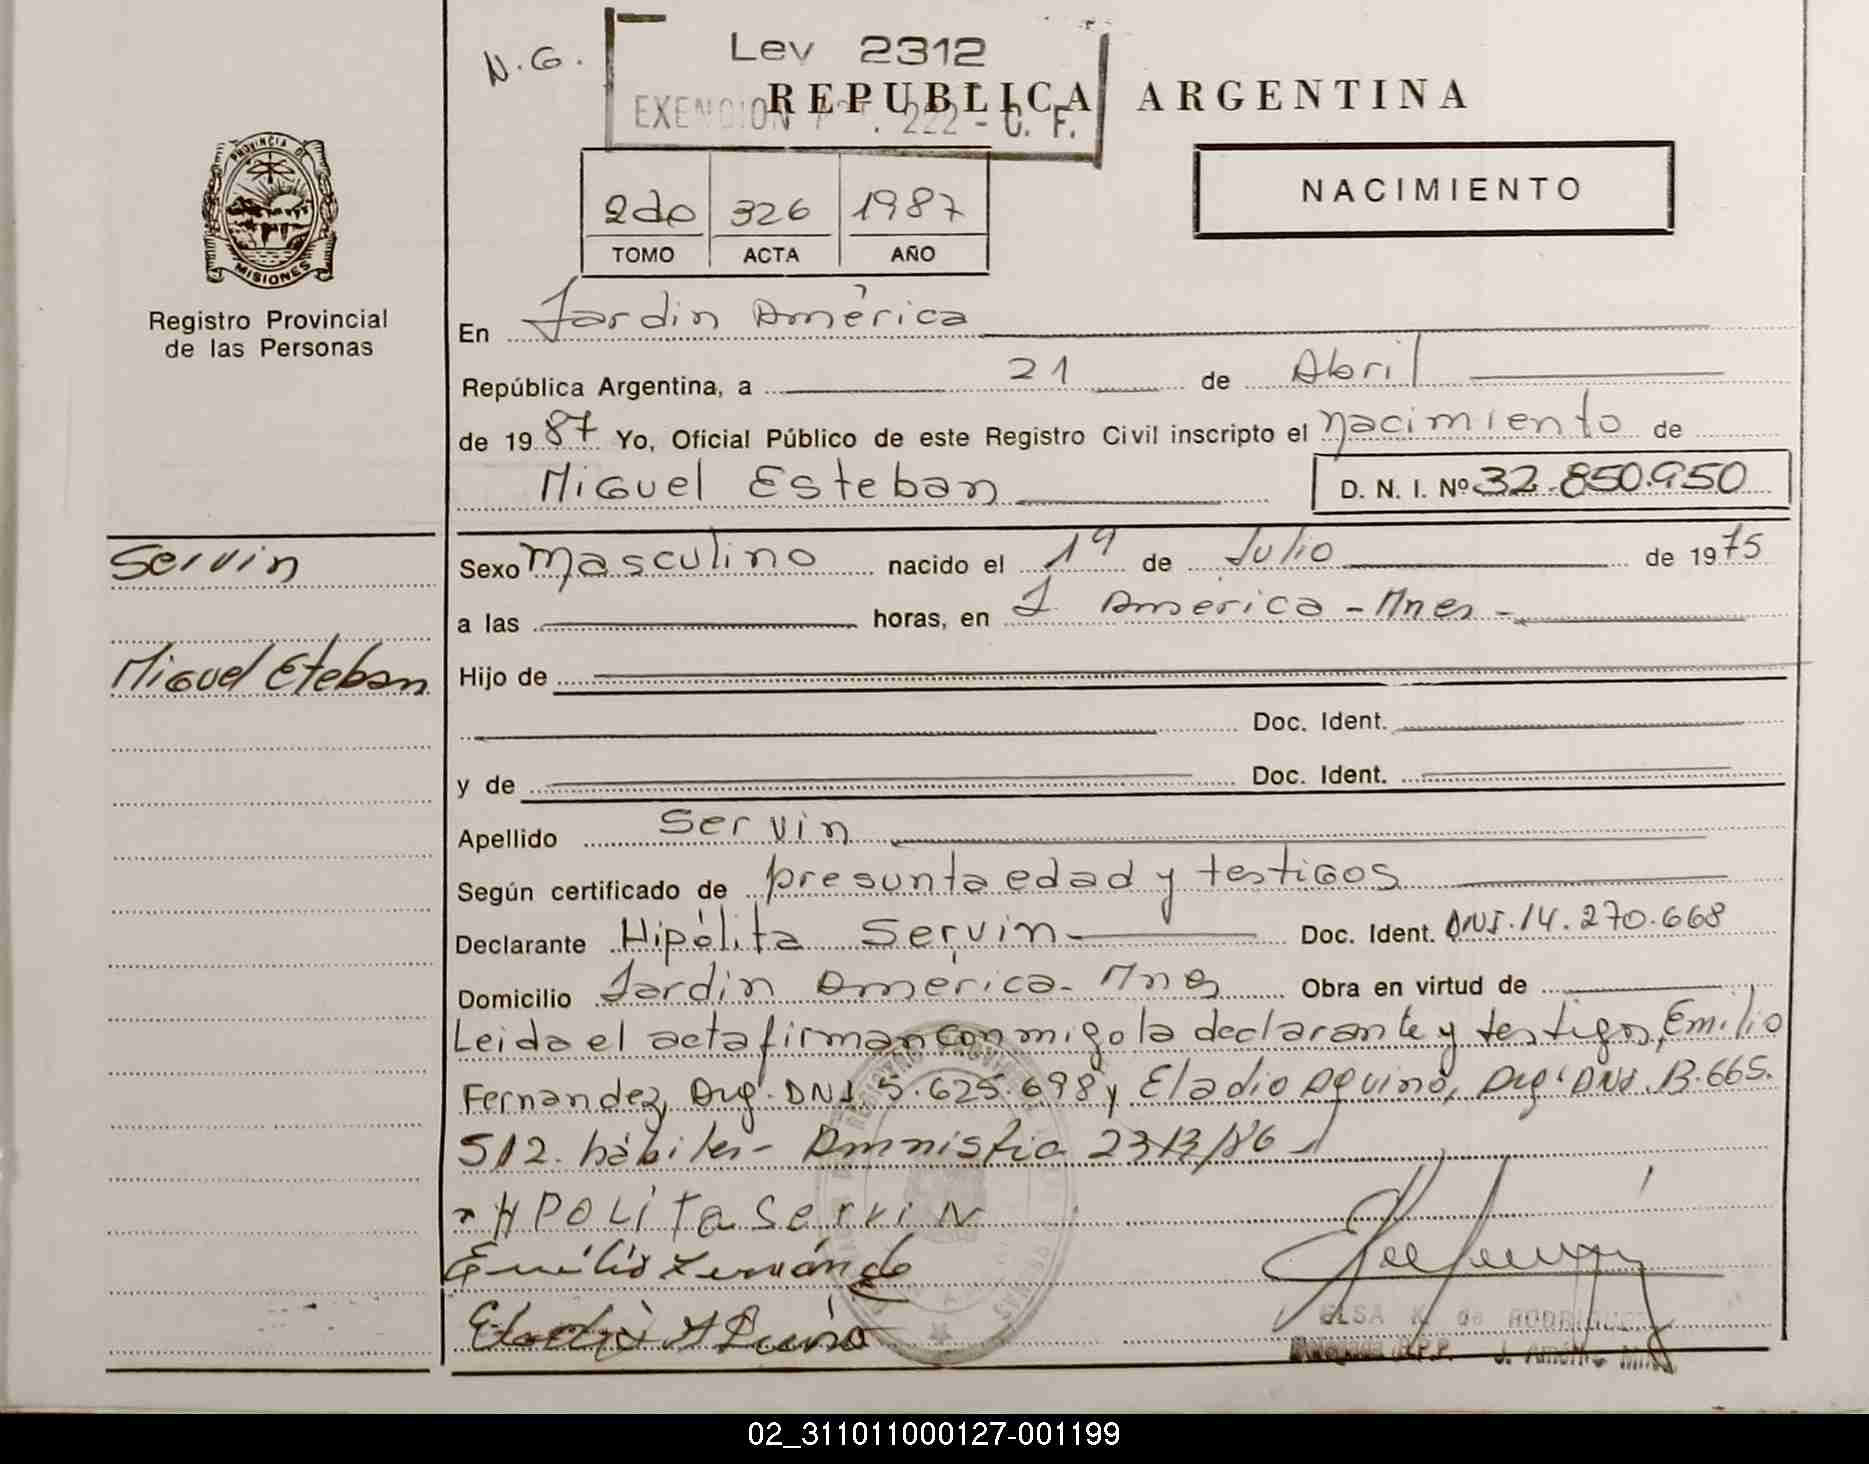 N.G.
Ley 2312
REPUBLICA ARGENTINA
EXENCION 222 - C. F.
NACIMIENTO
2do 326 1987
TOMO ACTA AÑO
PROVINCIA DE
MISIONES
Registro Provincial
de las Personas
En Jardin América
República Argentina, a 21 de Abril
de 1987 Yo, Oficial Público de este Registro Civil inscripto el nacimiento de
Miguel Esteban D. N. I. Nº 32.850.950
Servin
Miguel Eteban
Sexo masculino nacido el 19 de Julio de 1975
a las horas, en J. America - Mnes -
Hijo de
Doc. Ident.
y de Doc. Ident.
Apellido Servin
Según certificado de presunta edad y testigos
Declarante Hipólita Servin Doc. Ident. DNI. 14.270.668
Domicilio Jardin América - Mnes Obra en virtud de
Leida el acta firman conmigo la declarante y testigos, Emilio
Fernandez, Arg. DNI. 5.625.698 y Eladio Aquino, Arg. DNI. 13.665.
512. hábiles - Amnistia
HPOLiTa Servin
Emilio Fernánde
ELSA K. de RODRIGUEZ